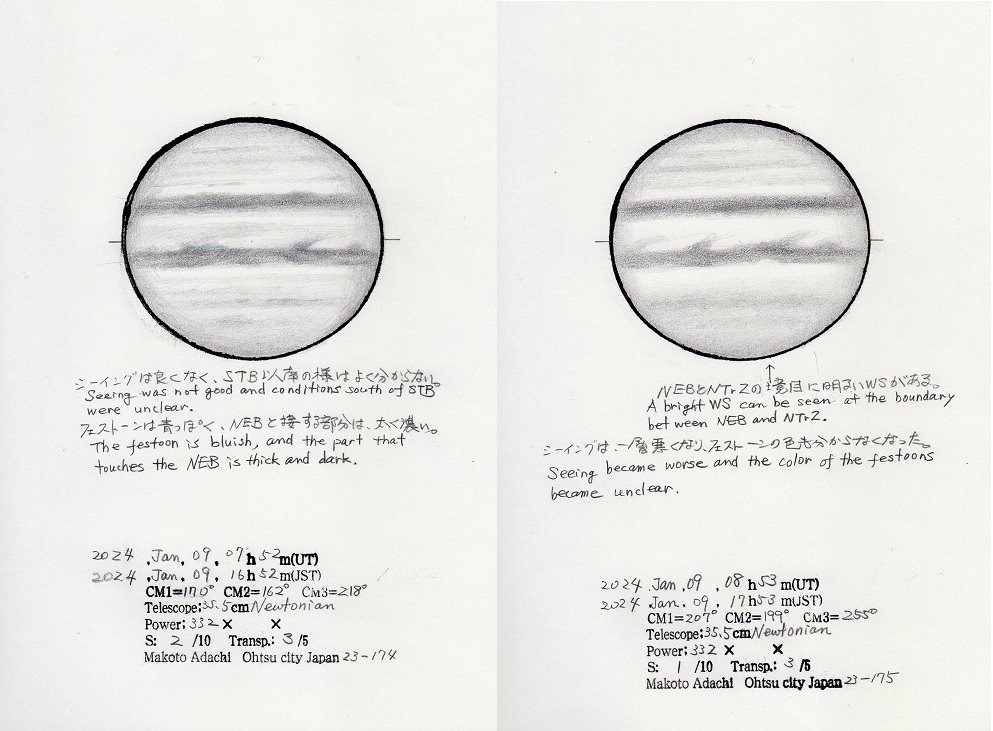 シーイングは良くなく、STB以南の様はよく分からない。
Seeing was not good and conditions south of STB
were unclear.
フェストーンは青っぽく、NEBと接する部分は、太く濃い。
The festoon is bluish, and the part that
touches the NEB is thick and dark.
2024 .Jan. 09. 07h 52m(UT)
2024 .Jan. 09. 16h 52m(JST)
CM1=170° CM2=162° CM3=218°
Telescope:35.5cm Newtonian
Power: 332× ×
S: 2 /10 Transp.: 3 /5
Makoto Adachi Ohtsu city Japan 23-174
NEBとNTrZの境目に明るいWSがある。
A bright WS can be seen at the boundary
between NEB and NTrZ.
シーイングは、一層悪くなり、フェストーンの色も分からなくなった。
Seeing became worse and the color of the festoons
became unclear.
2024 .Jan. 09 . 08h53m(UT)
2024 .Jan. 09. 17h53m(JST)
CM1=207° CM2=199° CM3=255°
Telescope:35.5cm Newtonian
Power: 332 × ×
S: 1 /10 Transp.: 3 /5
Makoto Adachi Ohtsu city Japan 23-175